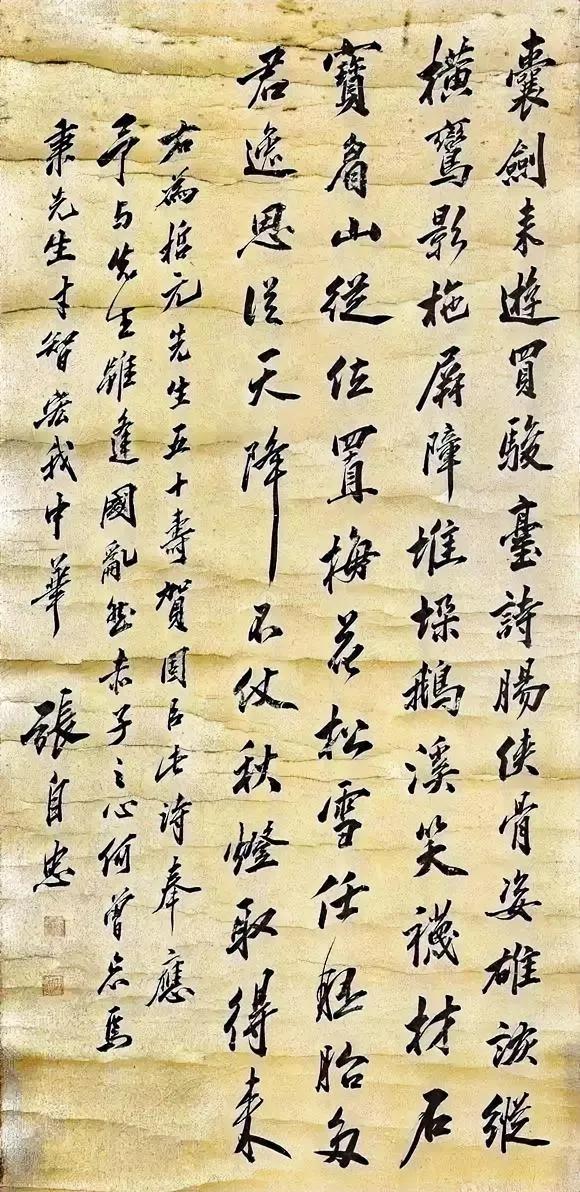 囊劍来遊買駿臺詩腸俠骨姿雄詼縱
橫鸞影拖屏障堆垛鵝溪笑襪材石
寶眉山從位置梅花松雪任胚胎多
君逸思從天降不仗秋燈取得来
右為哲元先生五十壽賀因此詩奉應
予与先生雖逢國亂然赤子之心何曾忘焉
秉先生才智宏我中華 張自忠